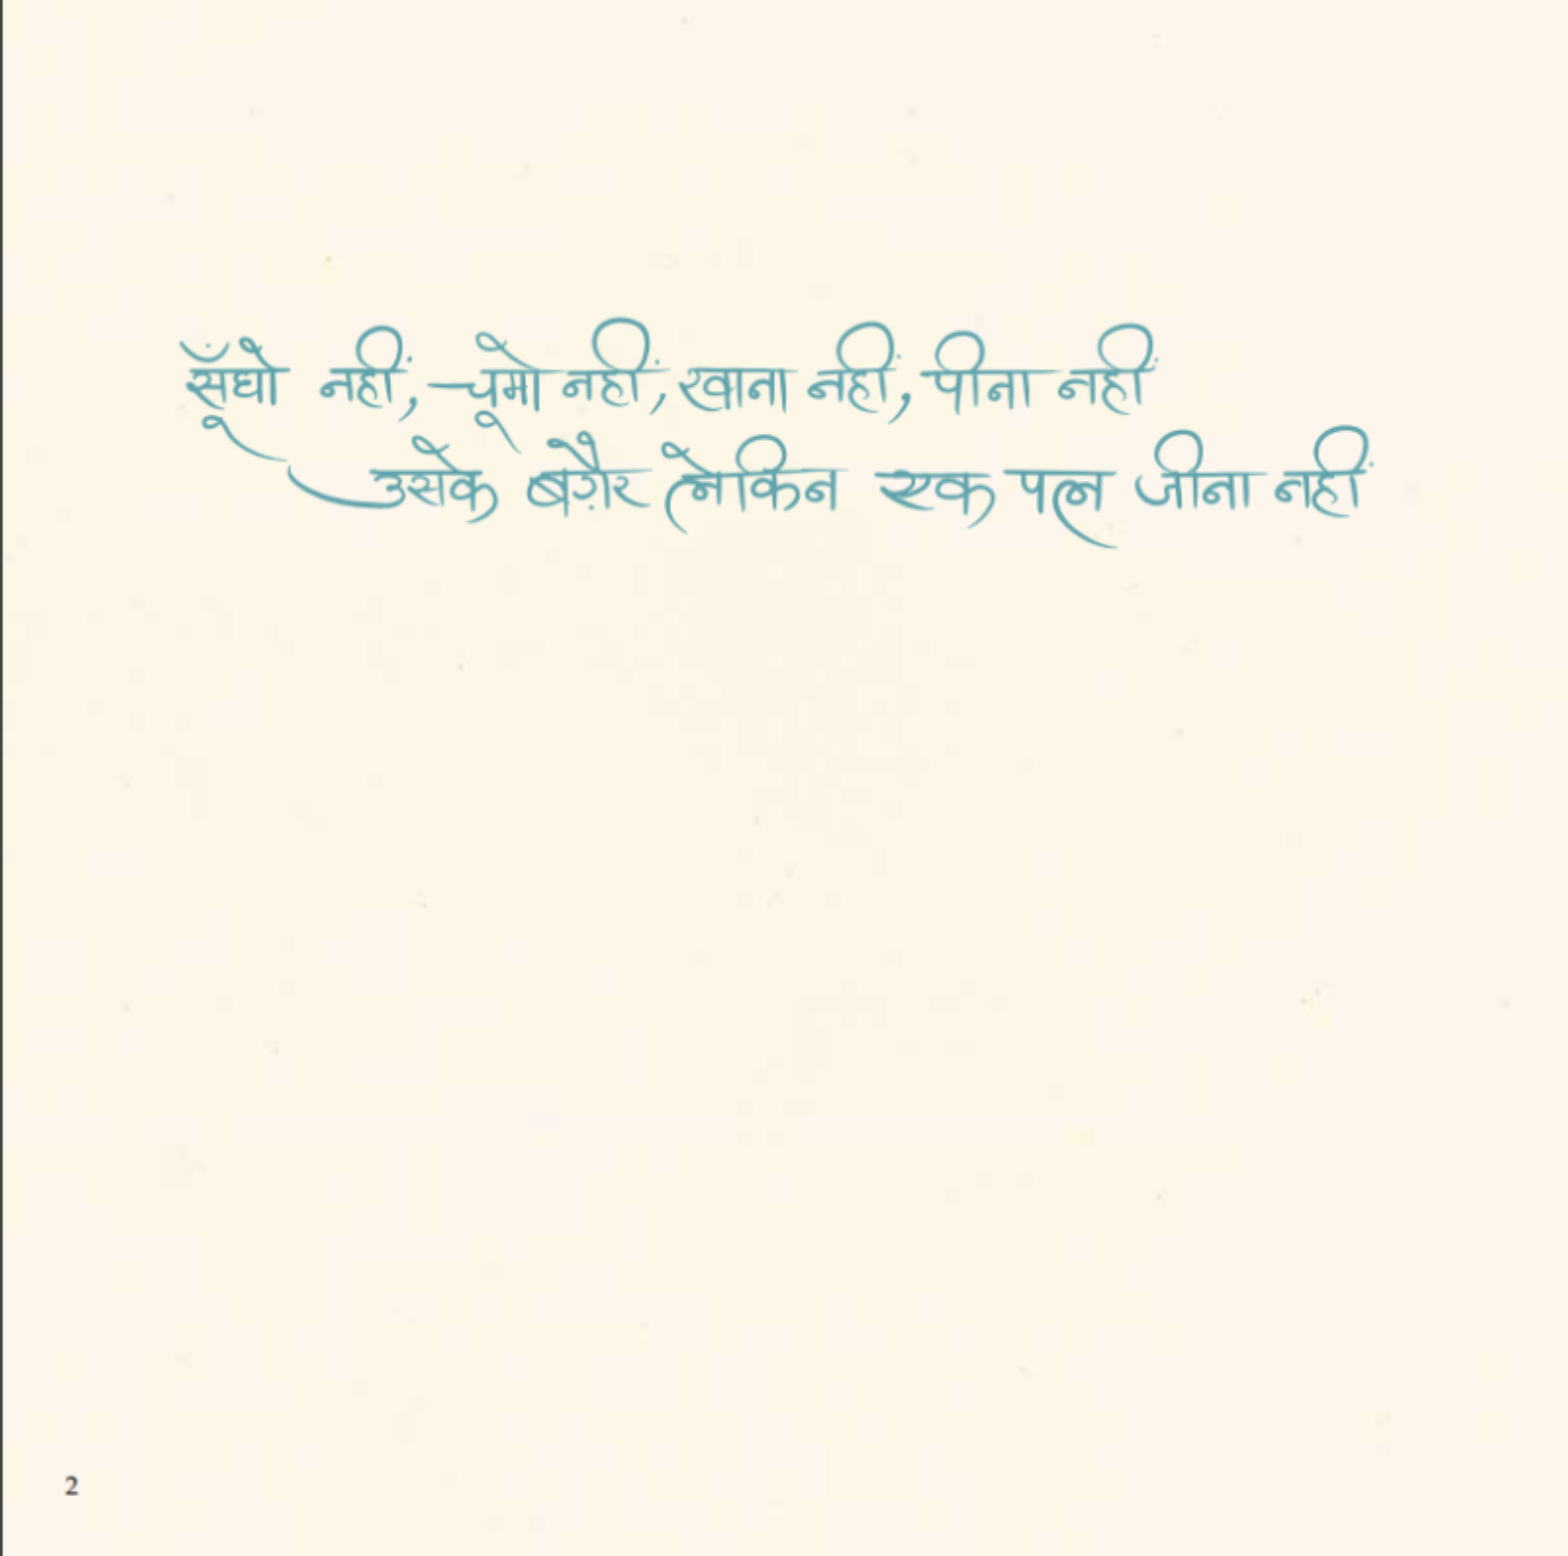 सूँघो नहीं, चूमो नहीं, खाना नहीं, पीना नहीं
उसके बग़ैर लेकिन एक पल जीना नहीं
2